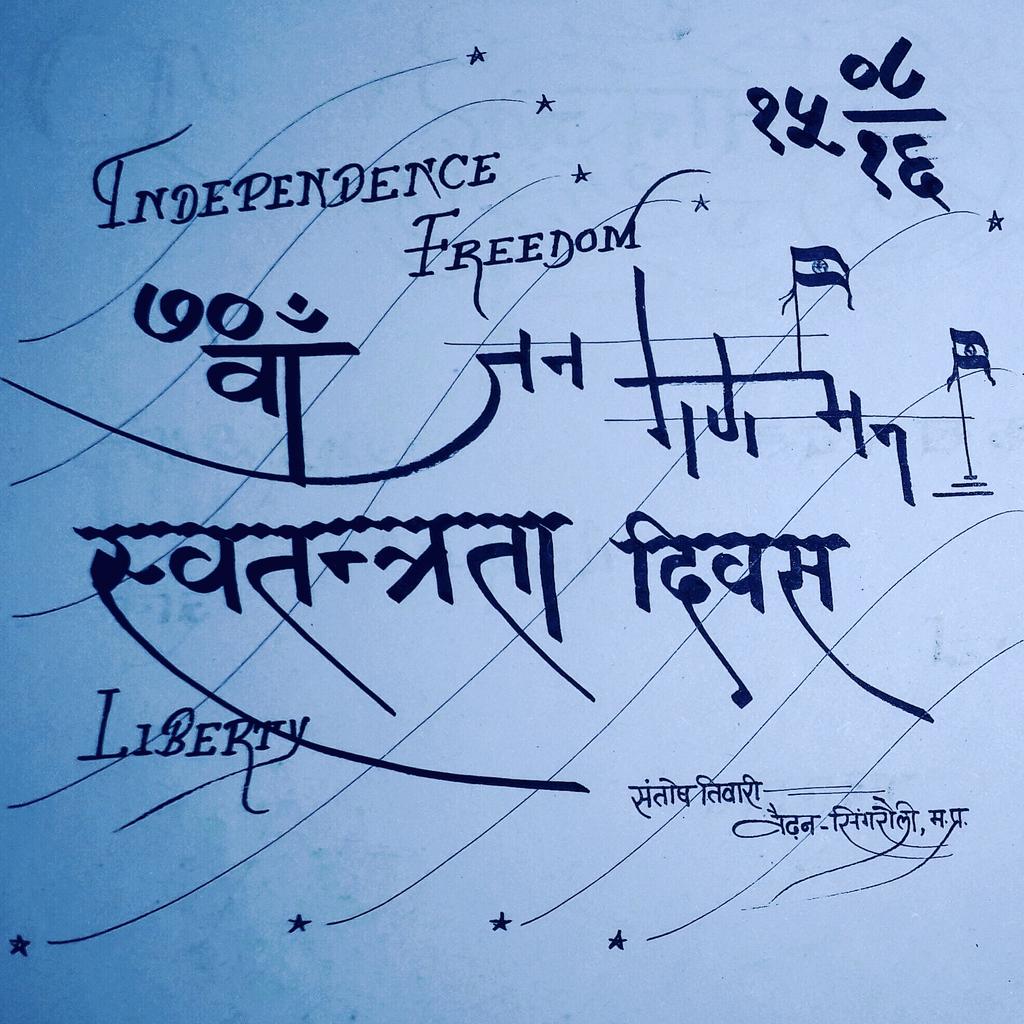 १५ ०८/१६
INDEPENDENCE
FREEDOM
७० वाँ
जन गण मन
स्वतन्त्रता दिवस
LIBERTY
संतोष तिवारी
बैढ़न-सिंगरौली, म.प्र.